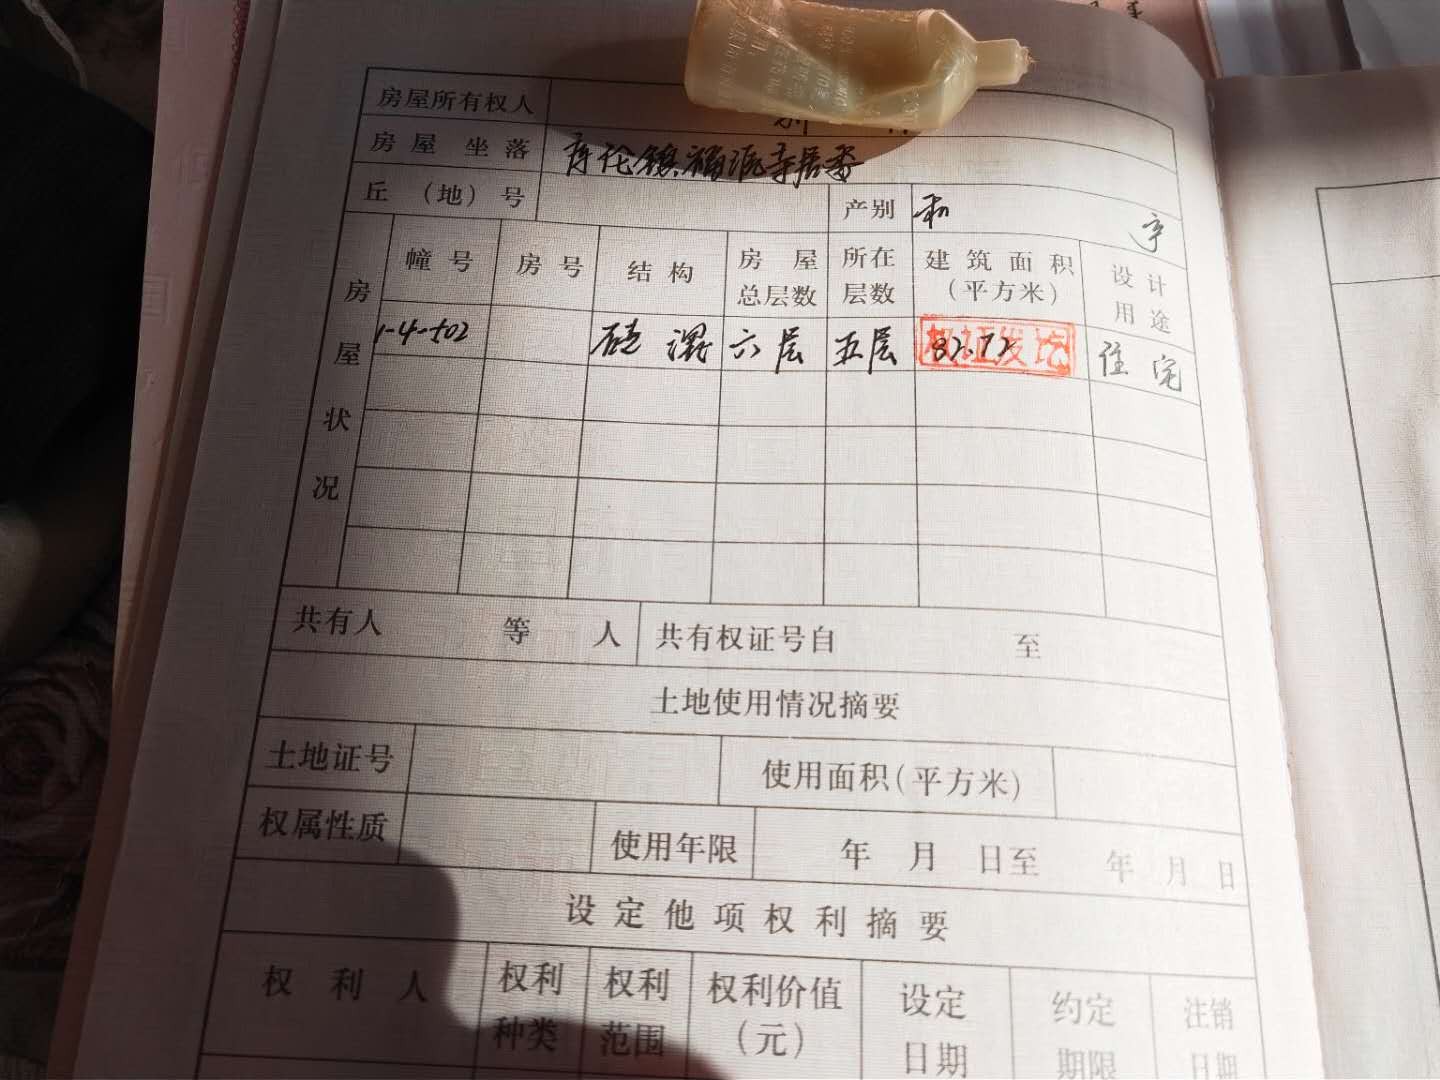 房屋所有权人
房屋坐落 库伦镇福源寺居委
丘（地）号 产别 私产
房屋状况 幢号 房号 结构 房屋总层数 所在层数 建筑面积（平方米） 设计用途
1-4-502 砖混 六层 五层 82.72 住宅
共有人 等 人 共有权证号自 至
土地使用情况摘要
土地证号 使用面积（平方米）
权属性质 使用年限 年 月 日至 年 月 日
设定他项权利摘要
权利人 权利种类 权利范围 权利价值（元） 设定日期 约定期限 注销日期